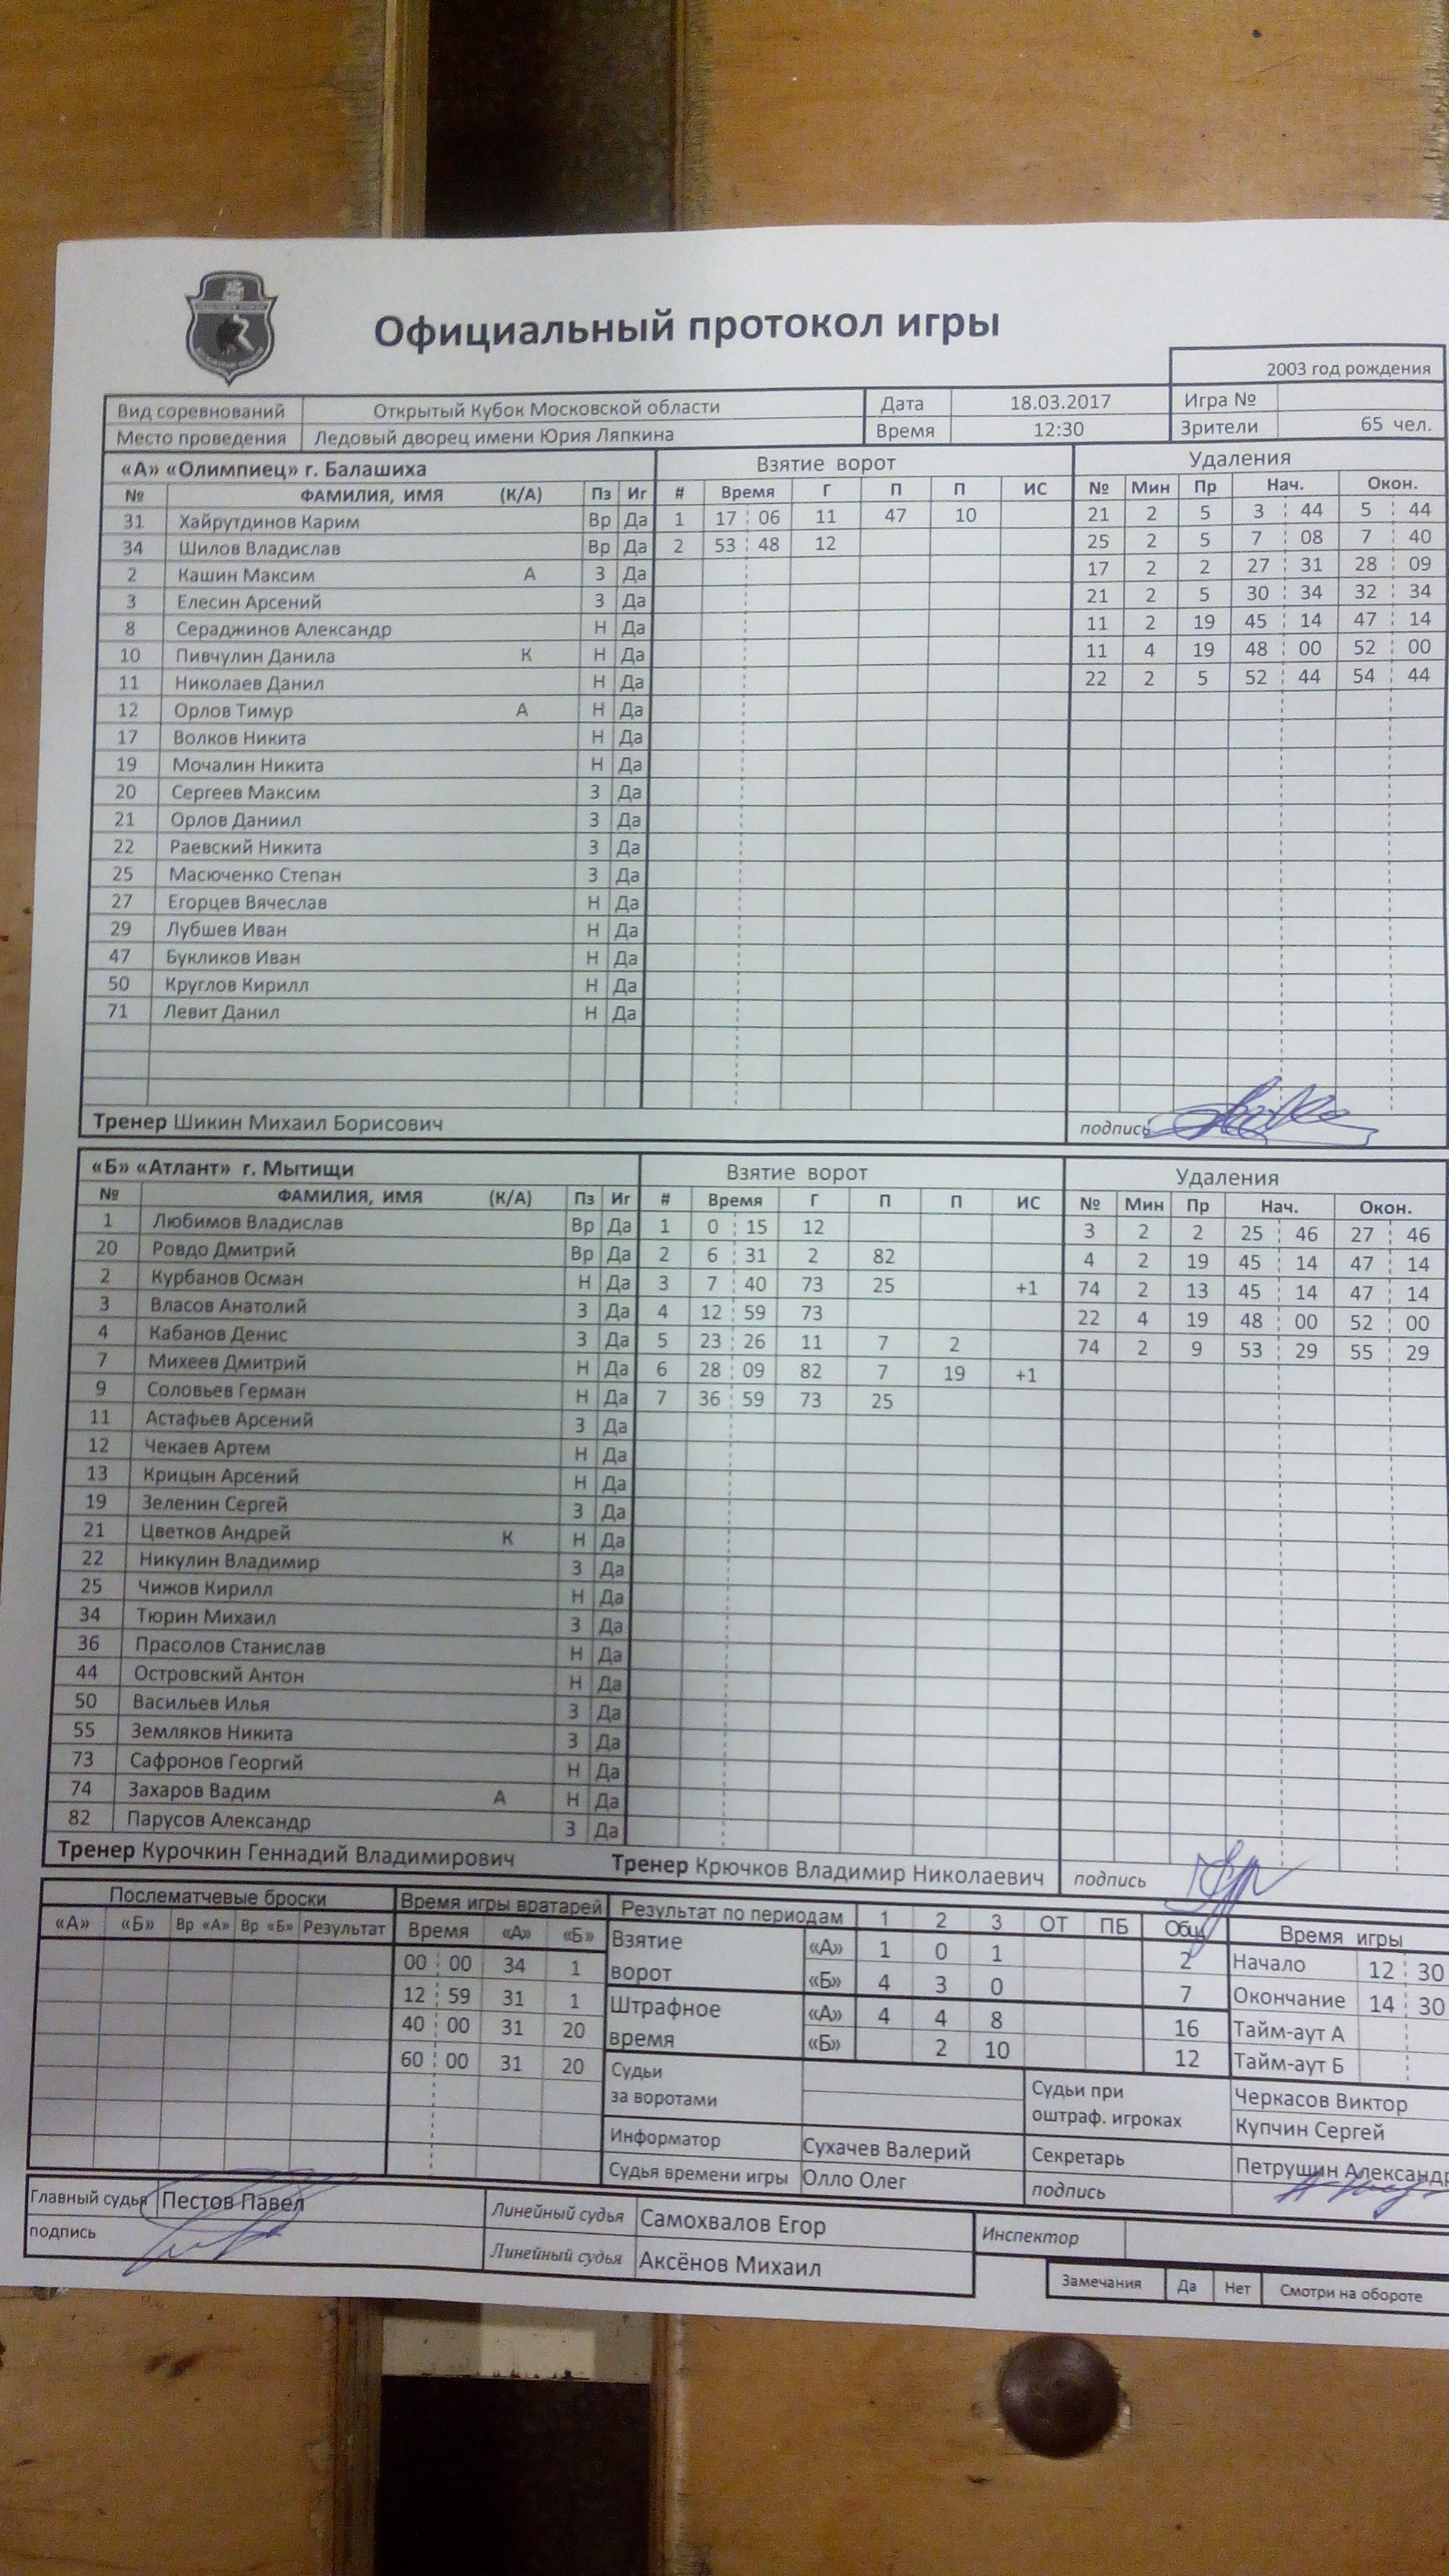 Официальный протокол игры
2003 год рождения
Вид соревнований Открытый Кубок Московской области Дата 18.03.2017 Игра №
Место проведения Ледовый дворец имени Юрия Ляпкина Время 12:30 Зрители 65 чел.
«А» «Олимпиец» г. Балашиха Взятие ворот Удаления
№ ФАМИЛИЯ, ИМЯ (К/А) Пз Иг # Время Г П П ИС № Мин Пр Нач. Окон.
31 Хайрутдинов Карим Вр Да 1 17 : 06 11 47 10 21 2 5 3 : 44 5 : 44
34 Шилов Владислав Вр Да 2 53 : 48 12 25 2 5 7 : 08 7 : 40
2 Кашин Максим А З Да 17 2 2 27 : 31 28 : 09
3 Елесин Арсений З Да 21 2 5 30 : 34 32 : 34
8 Сераджинов Александр Н Да 11 2 19 45 : 14 47 : 14
10 Пивчулин Данила К Н Да 11 4 19 48 : 00 52 : 00
11 Николаев Данил Н Да 22 2 5 52 : 44 54 : 44
12 Орлов Тимур А Н Да
17 Волков Никита Н Да
19 Мочалин Никита Н Да
20 Сергеев Максим З Да
21 Орлов Даниил З Да
22 Раевский Никита З Да
25 Масюченко Степан З Да
27 Егорцев Вячеслав Н Да
29 Лубшев Иван Н Да
47 Букликов Иван Н Да
50 Круглов Кирилл Н Да
71 Левит Данил Н Да
Тренер Шикин Михаил Борисович подпись
«Б» «Атлант» г. Мытищи Взятие ворот Удаления
№ ФАМИЛИЯ, ИМЯ (К/А) Пз Иг # Время Г П П ИС № Мин Пр Нач. Окон.
1 Любимов Владислав Вр Да 1 0 : 15 12 3 2 2 25 : 46 27 : 46
20 Ровдо Дмитрий Вр Да 2 6 : 31 2 82 4 2 19 45 : 14 47 : 14
2 Курбанов Осман Н Да 3 7 : 40 73 25 +1 74 2 13 45 : 14 47 : 14
3 Власов Анатолий З Да 4 12 : 59 73 22 4 19 48 : 00 52 : 00
4 Кабанов Денис З Да 5 23 : 26 11 7 2 74 2 9 53 : 29 55 : 29
7 Михеев Дмитрий Н Да 6 28 : 09 82 7 19 +1
9 Соловьев Герман Н Да 7 36 : 59 73 25
11 Астафьев Арсений З Да
12 Чекаев Артем Н Да
13 Крицын Арсений Н Да
19 Зеленин Сергей З Да
21 Цветков Андрей К Н Да
22 Никулин Владимир З Да
25 Чижов Кирилл Н Да
34 Тюрин Михаил З Да
36 Прасолов Станислав Н Да
44 Островский Антон Н Да
50 Васильев Илья З Да
55 Земляков Никита З Да
73 Сафронов Георгий Н Да
74 Захаров Вадим А Н Да
82 Парусов Александр З Да
Тренер Курочкин Геннадий Владимирович Тренер Крючков Владимир Николаевич подпись
Послематчевые броски Время игры вратарей Результат по периодам 1 2 3 ОТ ПБ Общ Время игры
«А» «Б» Вр «А» Вр «Б» Результат Время «А» «Б» Взятие ворот «А» 1 0 1 2 Начало 12 : 30
00 : 00 34 1 «Б» 4 3 0 7 Окончание 14 : 30
12 : 59 31 1 Штрафное время «А» 4 4 8 16 Тайм-аут А
40 : 00 31 20 «Б» 2 10 12 Тайм-аут Б
60 : 00 31 20 Судьи за воротами Судьи при оштраф. игроках Черкасов Виктор
Купчин Сергей
Информатор Сухачев Валерий Секретарь Петрушин Александр
Судья времени игры Олло Олег подпись
Главный судья Пестов Павел Линейный судья Самохвалов Егор Инспектор
подпись Линейный судья Аксёнов Михаил Замечания Да Нет Смотри на обороте